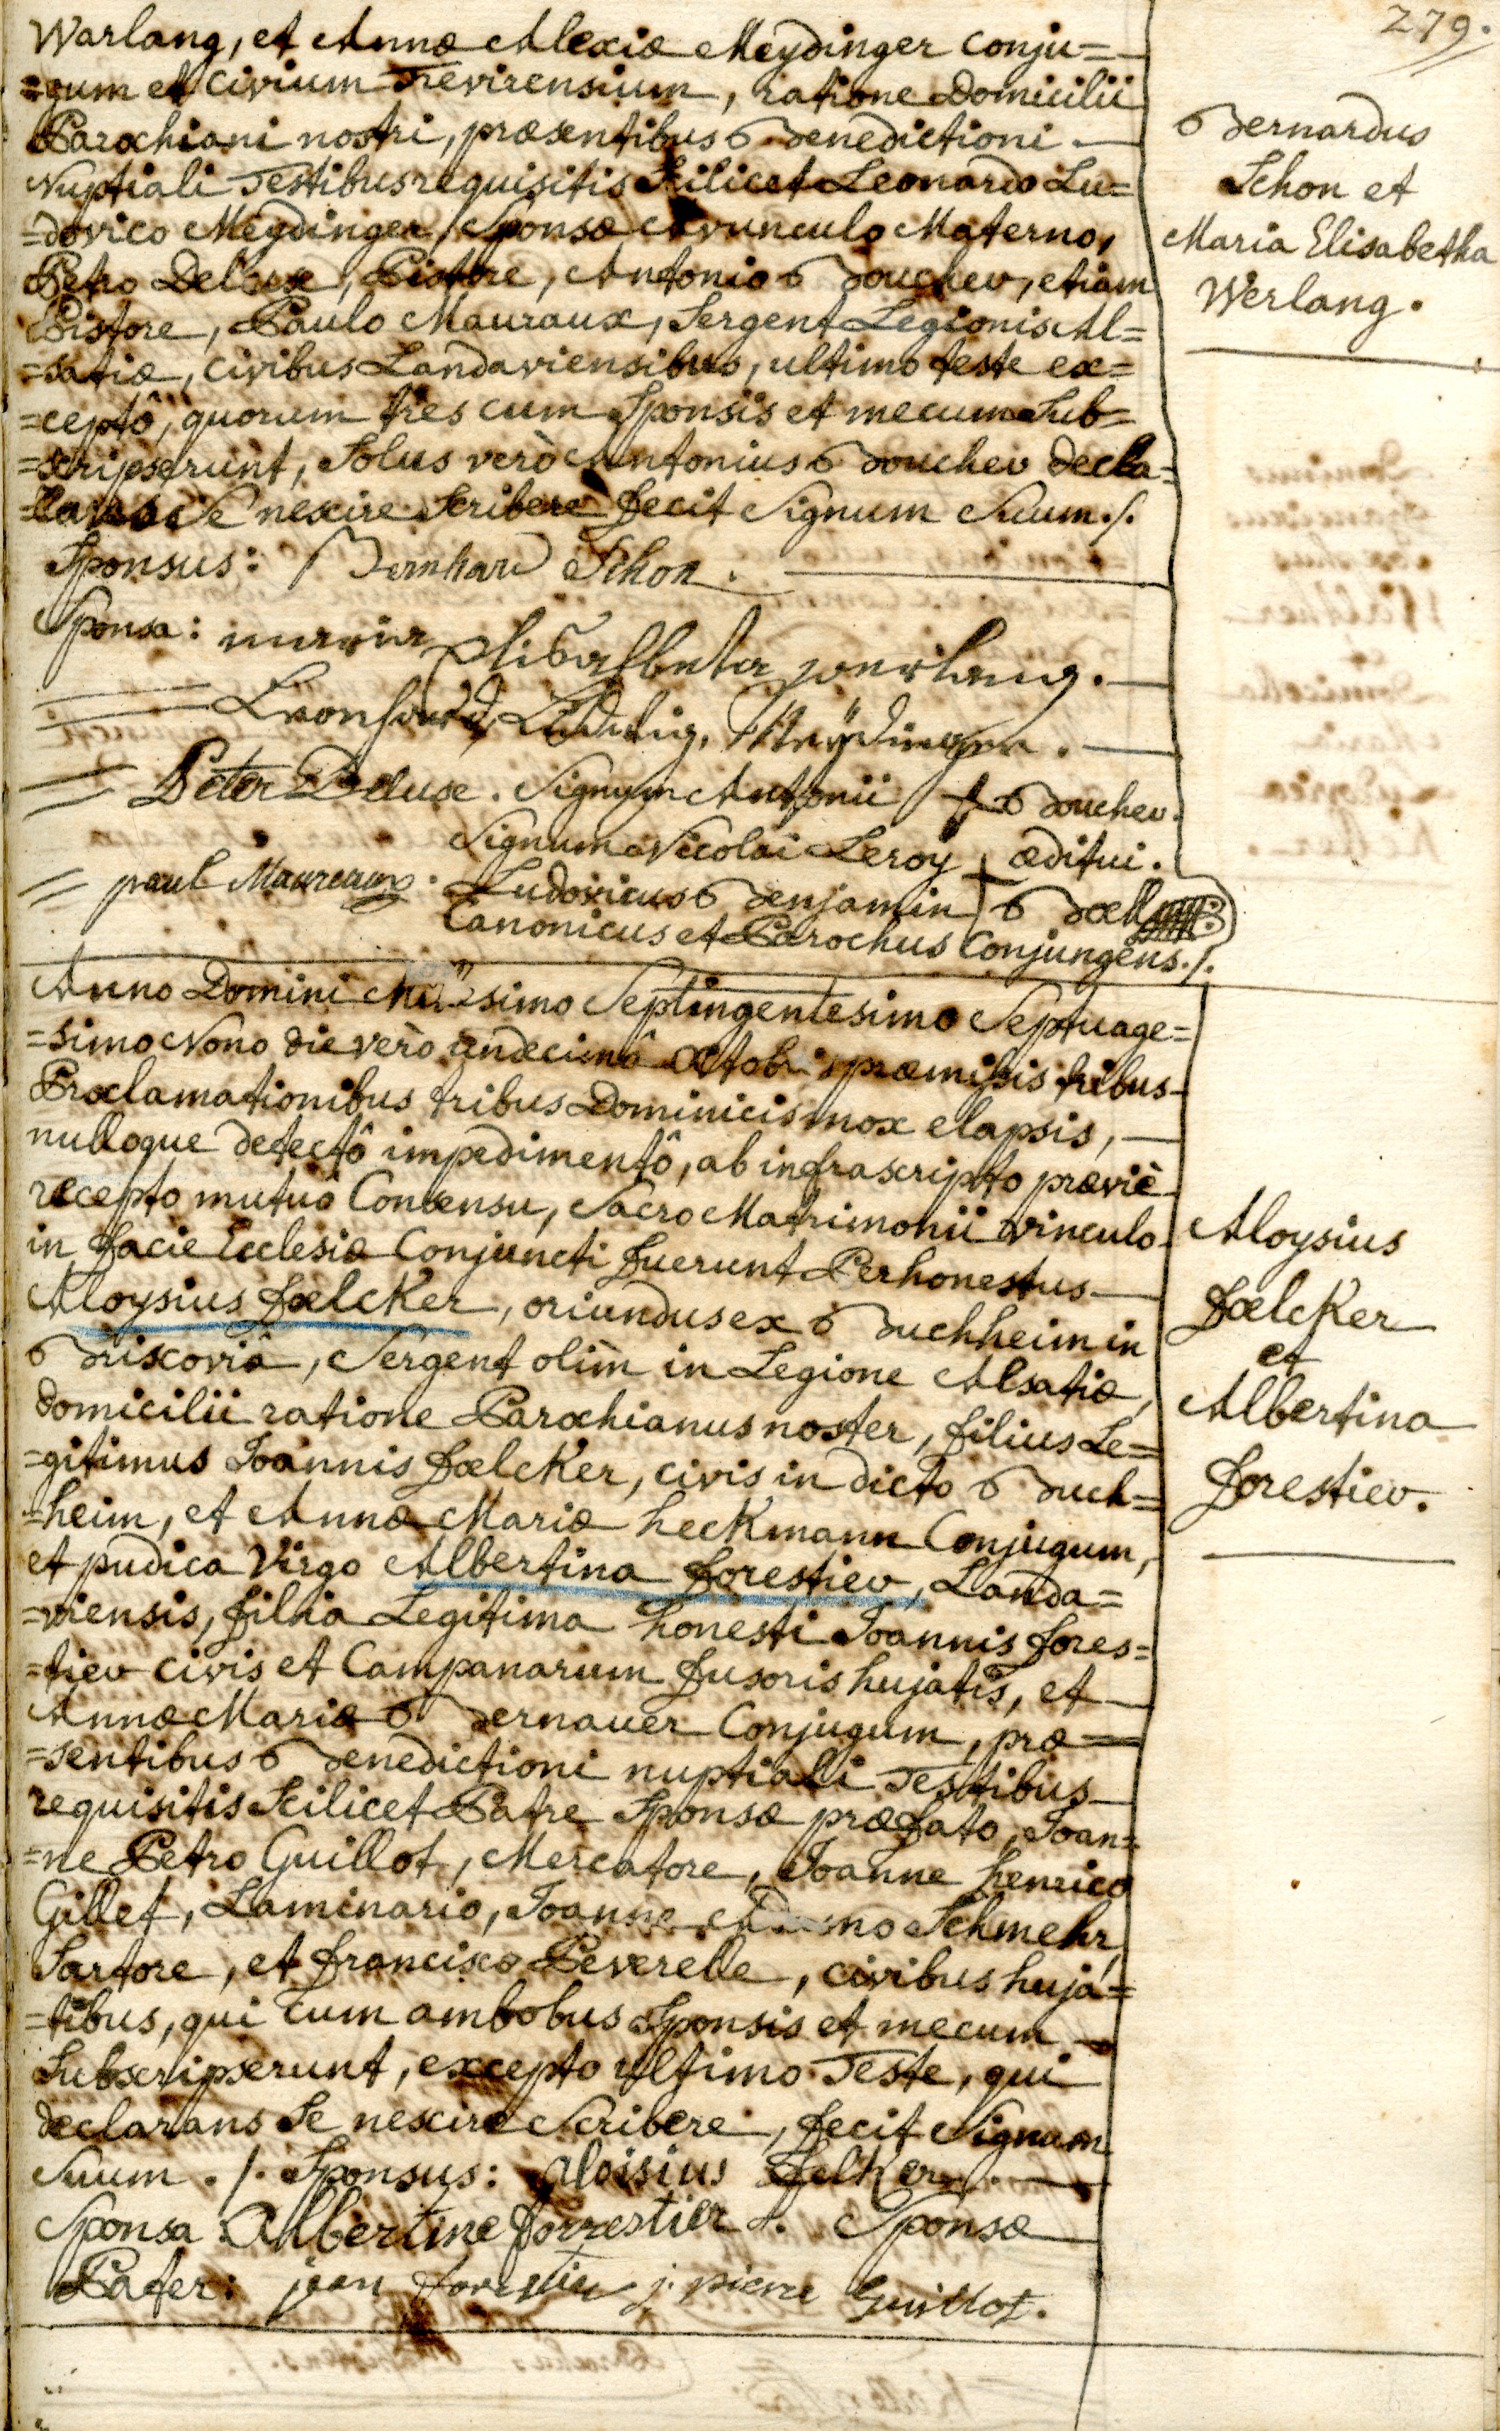 279.
Warlang, et Annæ Alexiæ Meydinger conju=
=gum et Civium Trevirensium, ratione Domicilii
Parochiani nostri, præsentibus Benedictioni
Nuptiali Testibus requisitis Scilicet Leonardo Lu=
=dovico Meydinger, Sponsæ Avunculo Materno,
Petro Deluxe, Pistore, Antonio Boucher, etiam
Pistore, Paulo Mauraux, Sergent Legionis Al=
=satiæ, civibus Landaviensibus, ultimo teste ex=
=ceptô, quorum tres cum Sponsis et mecum Sub=
=scripserunt, Solus verò Antonius Boucher decla=
=rans Se nescire Scribere fecit Signum Suum ./.
Sponsus: Bernhard Schon.
Sponsa: maria Elisabetha werlang.
Leonhard Ludwig Meydinger.
Peter Deluxe. Signum Antonii + Boucher.
Signum Nicolai Leroy + æditui.
paul Maureaux. Ludovicus Benjamin Boell
Canonicus et Parochus Conjungens ./.
Bernardus
Schon et
Maria Elisabetha
Werlang.
Anno Domini Millesimo Septingentesimo Septuage=
=simo Nono die verò undecimâ Octobris præmissis tribus
Proclamationibus tribus Dominicis mox elapsis,
nulloque detectô impedimentô, ab infrascripto præviè
recepto mutuô Consensu, Sacro Matrimonii vinculo
in facie Ecclesiæ Conjuncti fuerunt Perhonestus
Aloysius foelcker, oriundus ex Buchheim in
Briscoviâ, Sergent olim in Legione Alsatiæ,
domicilii ratione Parochianus noster, filius Le=
=gitimus Joannis foelcker, civis in dicto Buch=
=heim, et Annæ Mariæ heckmann Conjugum,
et pudica Virgo Albertina forestier, Landa=
=viensis, filia Legitima honesti Joannis fores=
=tier civis et Campanarum fusoris hujatis, et
Annæ Mariæ Bernauer Conjugum, præ=
=sentibus Benedictioni nuptiali Testibus
requisitis Scilicet Patre Sponsæ præfato, Joan=
=ne Petro Guillot, Mercatore, Joanne henrico
Gillet, Laminario, Joanne Adamo Schmehr,
Sartore, et francisco Peverelle, civibus huja=
=tibus, qui cum ambobus Sponsis et mecum
Subscripserunt, excepto ultimo Teste, qui
declarans Se nescire Scribere, fecit Signum
Suum ./. Sponsus: aloisius felker.
Sponsa: Albertine forrestier ./. Sponsæ
Pater: jean forestier j. pierre Guillot.
Aloysius
foelcker
et
Albertina
forestier.